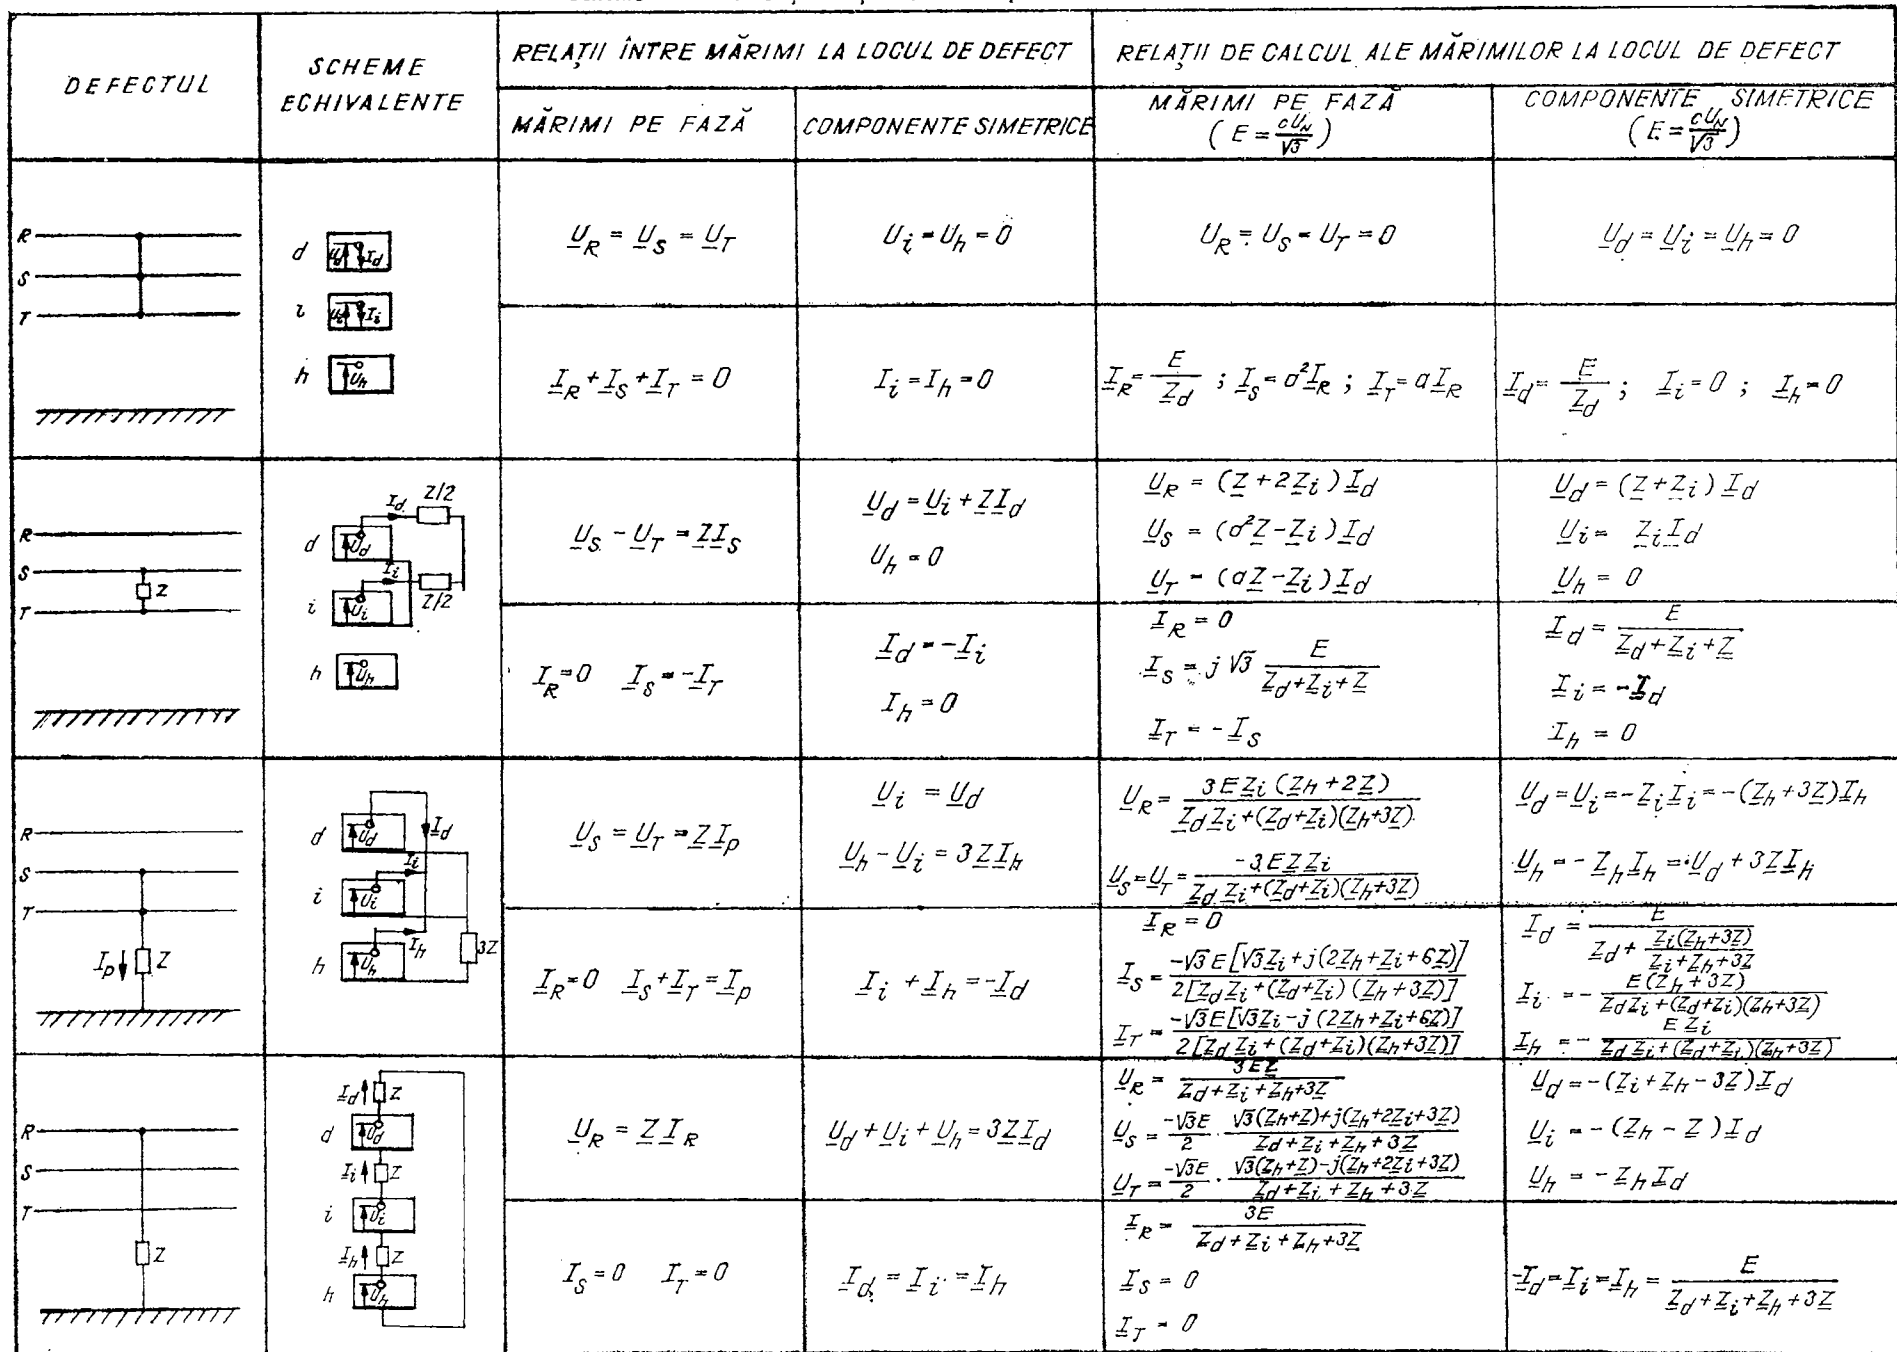 DEFECTUL
SCHEME
ECHIVALENTE
RELAȚII ÎNTRE MĂRIMI LA LOCUL DE DEFECT
RELAȚII DE CALCUL ALE MĂRIMILOR LA LOCUL DE DEFECT
MĂRIMI PE FAZĂ
COMPONENTE SIMETRICE
MĂRIMI PE FAZĂ
(E = cU_N/√3)
COMPONENTE SIMETRICE
(E = cU_N/√3)
R
S
T
d U_d I_d
i U_i I_i
h U_h
U_R = U_S = U_T
U_i = U_h = 0
U_R = U_S = U_T = 0
U_d = U_i = U_h = 0
I_R + I_S + I_T = 0
I_i = I_h = 0
I_R = E/Z_d ; I_S = a²I_R ; I_T = aI_R
I_d = E/Z_d ; I_i = 0 ; I_h = 0
R
S
Z
T
I_d Z/2
d U_d
I_i
Z/2
i U_i
h U_h
U_S - U_T = ZI_S
U_d = U_i + ZI_d
U_h = 0
U_R = (Z + 2Z_i) I_d
U_S = (a²Z - Z_i) I_d
U_T = (aZ - Z_i) I_d
U_d = (Z + Z_i) I_d
U_i = Z_i I_d
U_h = 0
I_R = 0 I_S = -I_T
I_d = -I_i
I_h = 0
I_R = 0
I_S = j√3 E/(Z_d + Z_i + Z)
I_T = -I_S
I_d = E/(Z_d + Z_i + Z)
I_i = -I_d
I_h = 0
R
S
T
I_p Z
d U_d I_d
I_i
i U_i
I_h
h U_h 3Z
U_S = U_T = ZI_p
U_i = U_d
U_h - U_i = 3ZI_h
U_R = 3EZ_i(Z_h + 2Z)/(Z_dZ_i + (Z_d + Z_i)(Z_h + 3Z))
U_S = U_T = -3EZZ_i/(Z_dZ_i + (Z_d + Z_i)(Z_h + 3Z))
U_d = U_i = -Z_iI_i = -(Z_h + 3Z)I_h
U_h = -Z_hI_h = U_d + 3ZI_h
I_R = 0 I_S + I_T = I_p
I_i + I_h = -I_d
I_R = 0
I_S = -√3E[√3Z_i + j(2Z_h + Z_i + 6Z)]/2[Z_dZ_i + (Z_d + Z_i)(Z_h + 3Z)]
I_T = -√3E[√3Z_i - j(2Z_h + Z_i + 6Z)]/2[Z_dZ_i + (Z_d + Z_i)(Z_h + 3Z)]
I_d = E/(Z_d + Z_i(Z_h + 3Z)/(Z_i + Z_h + 3Z))
I_i = -E(Z_h + 3Z)/(Z_dZ_i + (Z_d + Z_i)(Z_h + 3Z))
I_h = -EZ_i/(Z_dZ_i + (Z_d + Z_i)(Z_h + 3Z))
R
S
T
Z
I_d Z
d U_d
I_i Z
i U_i
I_h Z
h U_h
U_R = ZI_R
U_d + U_i + U_h = 3ZI_d
U_R = 3EZ/(Z_d + Z_i + Z_h + 3Z)
U_S = -√3E/2 · (√3(Z_h + Z) + j(Z_h + 2Z_i + 3Z))/(Z_d + Z_i + Z_h + 3Z)
U_T = -√3E/2 · (√3(Z_h + Z) - j(Z_h + 2Z_i + 3Z))/(Z_d + Z_i + Z_h + 3Z)
U_d = -(Z_i + Z_h - 3Z)I_d
U_i = -(Z_h - Z)I_d
U_h = -Z_hI_d
I_S = 0 I_T = 0
I_d = I_i = I_h
I_R = 3E/(Z_d + Z_i + Z_h + 3Z)
I_S = 0
I_T = 0
-I_d = I_i = I_h = E/(Z_d + Z_i + Z_h + 3Z)